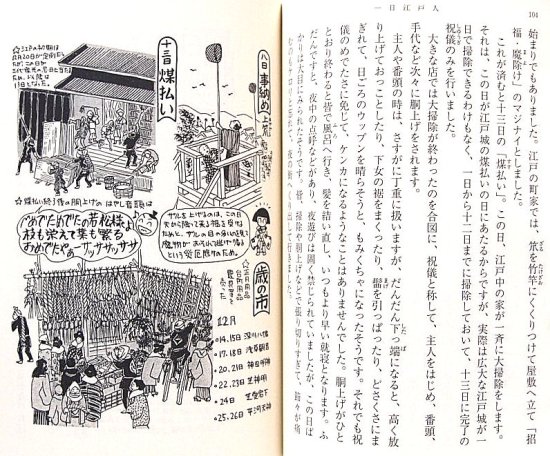 104
一日江戸人
始まりでもありました。江戸の町家では、笊を竹竿にくくりつけて屋敷へ立て「招
福・魔除け」のマジナイとしました。
これが済むと十三日の「煤払い」。この日、江戸中の家が一斉に大掃除をします。
それは、この日が江戸城の煤払いの日にあたるからですが、実際は広大な江戸城が一
日で掃除できるわけもなく、一日から十二日までに掃除しておいて、十三日に完了の
祝儀のみを行いました。
大きな店では大掃除が終わったのを合図に、祝儀と称して、主人をはじめ、番頭、
手代など次々に胴上げをされます。
主人や番頭の時は、さすがに丁重に扱いますが、だんだん下っ端になると、高く放
り上げておっことしたり、下女の裾をまくったり、髷を引っぱったり、どさくさにま
ぎれて、日ごろのウップンを晴らそうと、もみくちゃになったそうです。それでも祝
儀のめでたさに免じて、ケンカになるようなことはありませんでした。胴上げがひと
とおり終わると皆で風呂へ行き、髪を結い直し、いつもより早い就寝となります。ふ
だんですと、夜中の点呼などがあり、夜遊びは固く禁じられていましたが、この日ば
かりは大目にみられたそうです。皆、掃除や胴上げなどで張り切りすぎて、節々が痛
八日 事納め
十三日 煤払い
☆江戸の初期は
12月20日が定例
☆煤払い終了後の胴上げの はやし音頭は
めでためでたの若松様よ
枝も栄えて葉も繁る
おめでたやァーサッササッサ
ザルを上げるのは、この日
天から
魔物が
おそれて逃げ帰る
という厄除けのため。
歳の市
☆正月用品
台所用品
12月
・14.15日 深川八幡
・17.18日 浅草観音
・20.21日 神田明神
・22.23日 芝神明
・24日 芝愛宕下
・25.26日 平河天神